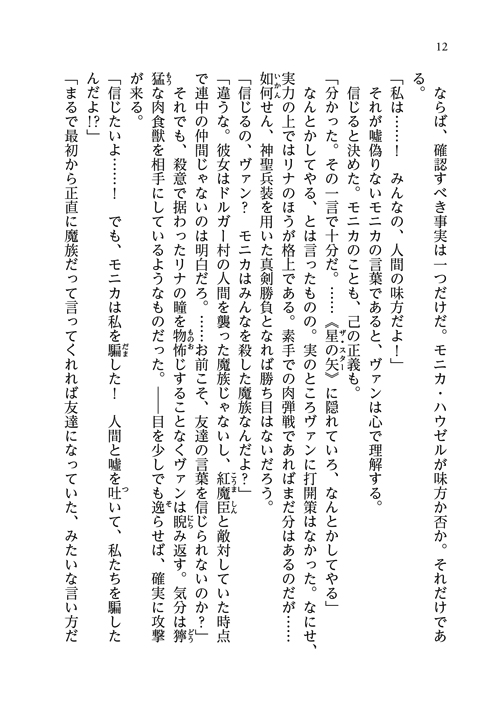 12
　ならば、確認すべき事実は一つだけだ。モニカ・ハウゼルが味方か否か。それだけであ
る。
「私は……！　みんなの、人間の味方だよ！」
　それが嘘偽りないモニカの言葉であると、ヴァンは心で理解する。
　信じると決めた。モニカのことも、己の正義も。
「分かった。その一言で十分だ。……《星の矢》に隠れていろ、なんとかしてやる」
ザ・スター
　なんとかしてやる、とは言ったものの。実のところヴァンに打開策はなかった。なにせ、
実力の上ではリナのほうが格上である。素手での肉弾戦であればまだ分はあるのだが……
如何せん、神聖兵装を用いた真剣勝負となれば勝ち目はないだろう。
いかん
「信じるの、ヴァン？　モニカはみんなを殺した魔族なんだよ？」
「違うな。彼女はドルガー村の人間を襲った魔族じゃないし、紅魔臣と敵対していた時点
こうましん
で連中の仲間じゃないのは明白だろ。……お前こそ、友達の言葉を信じられないのか？」
　それでも、殺意で据わったリナの瞳を物怖じすることなくヴァンは睨み返す。気分は獰
ものお
にら
どう
猛な肉食獣を相手にしているようなものだった。――目を少しでも逸らせば、確実に攻撃
もう
そ
が来る。
「信じたいよ……！　でも、モニカは私を騙した！　人間と嘘を吐いて、私たちを騙した
だま
つ
んだよ!?」
「まるで最初から正直に魔族だって言ってくれれば友達になっていた、みたいな言い方だ